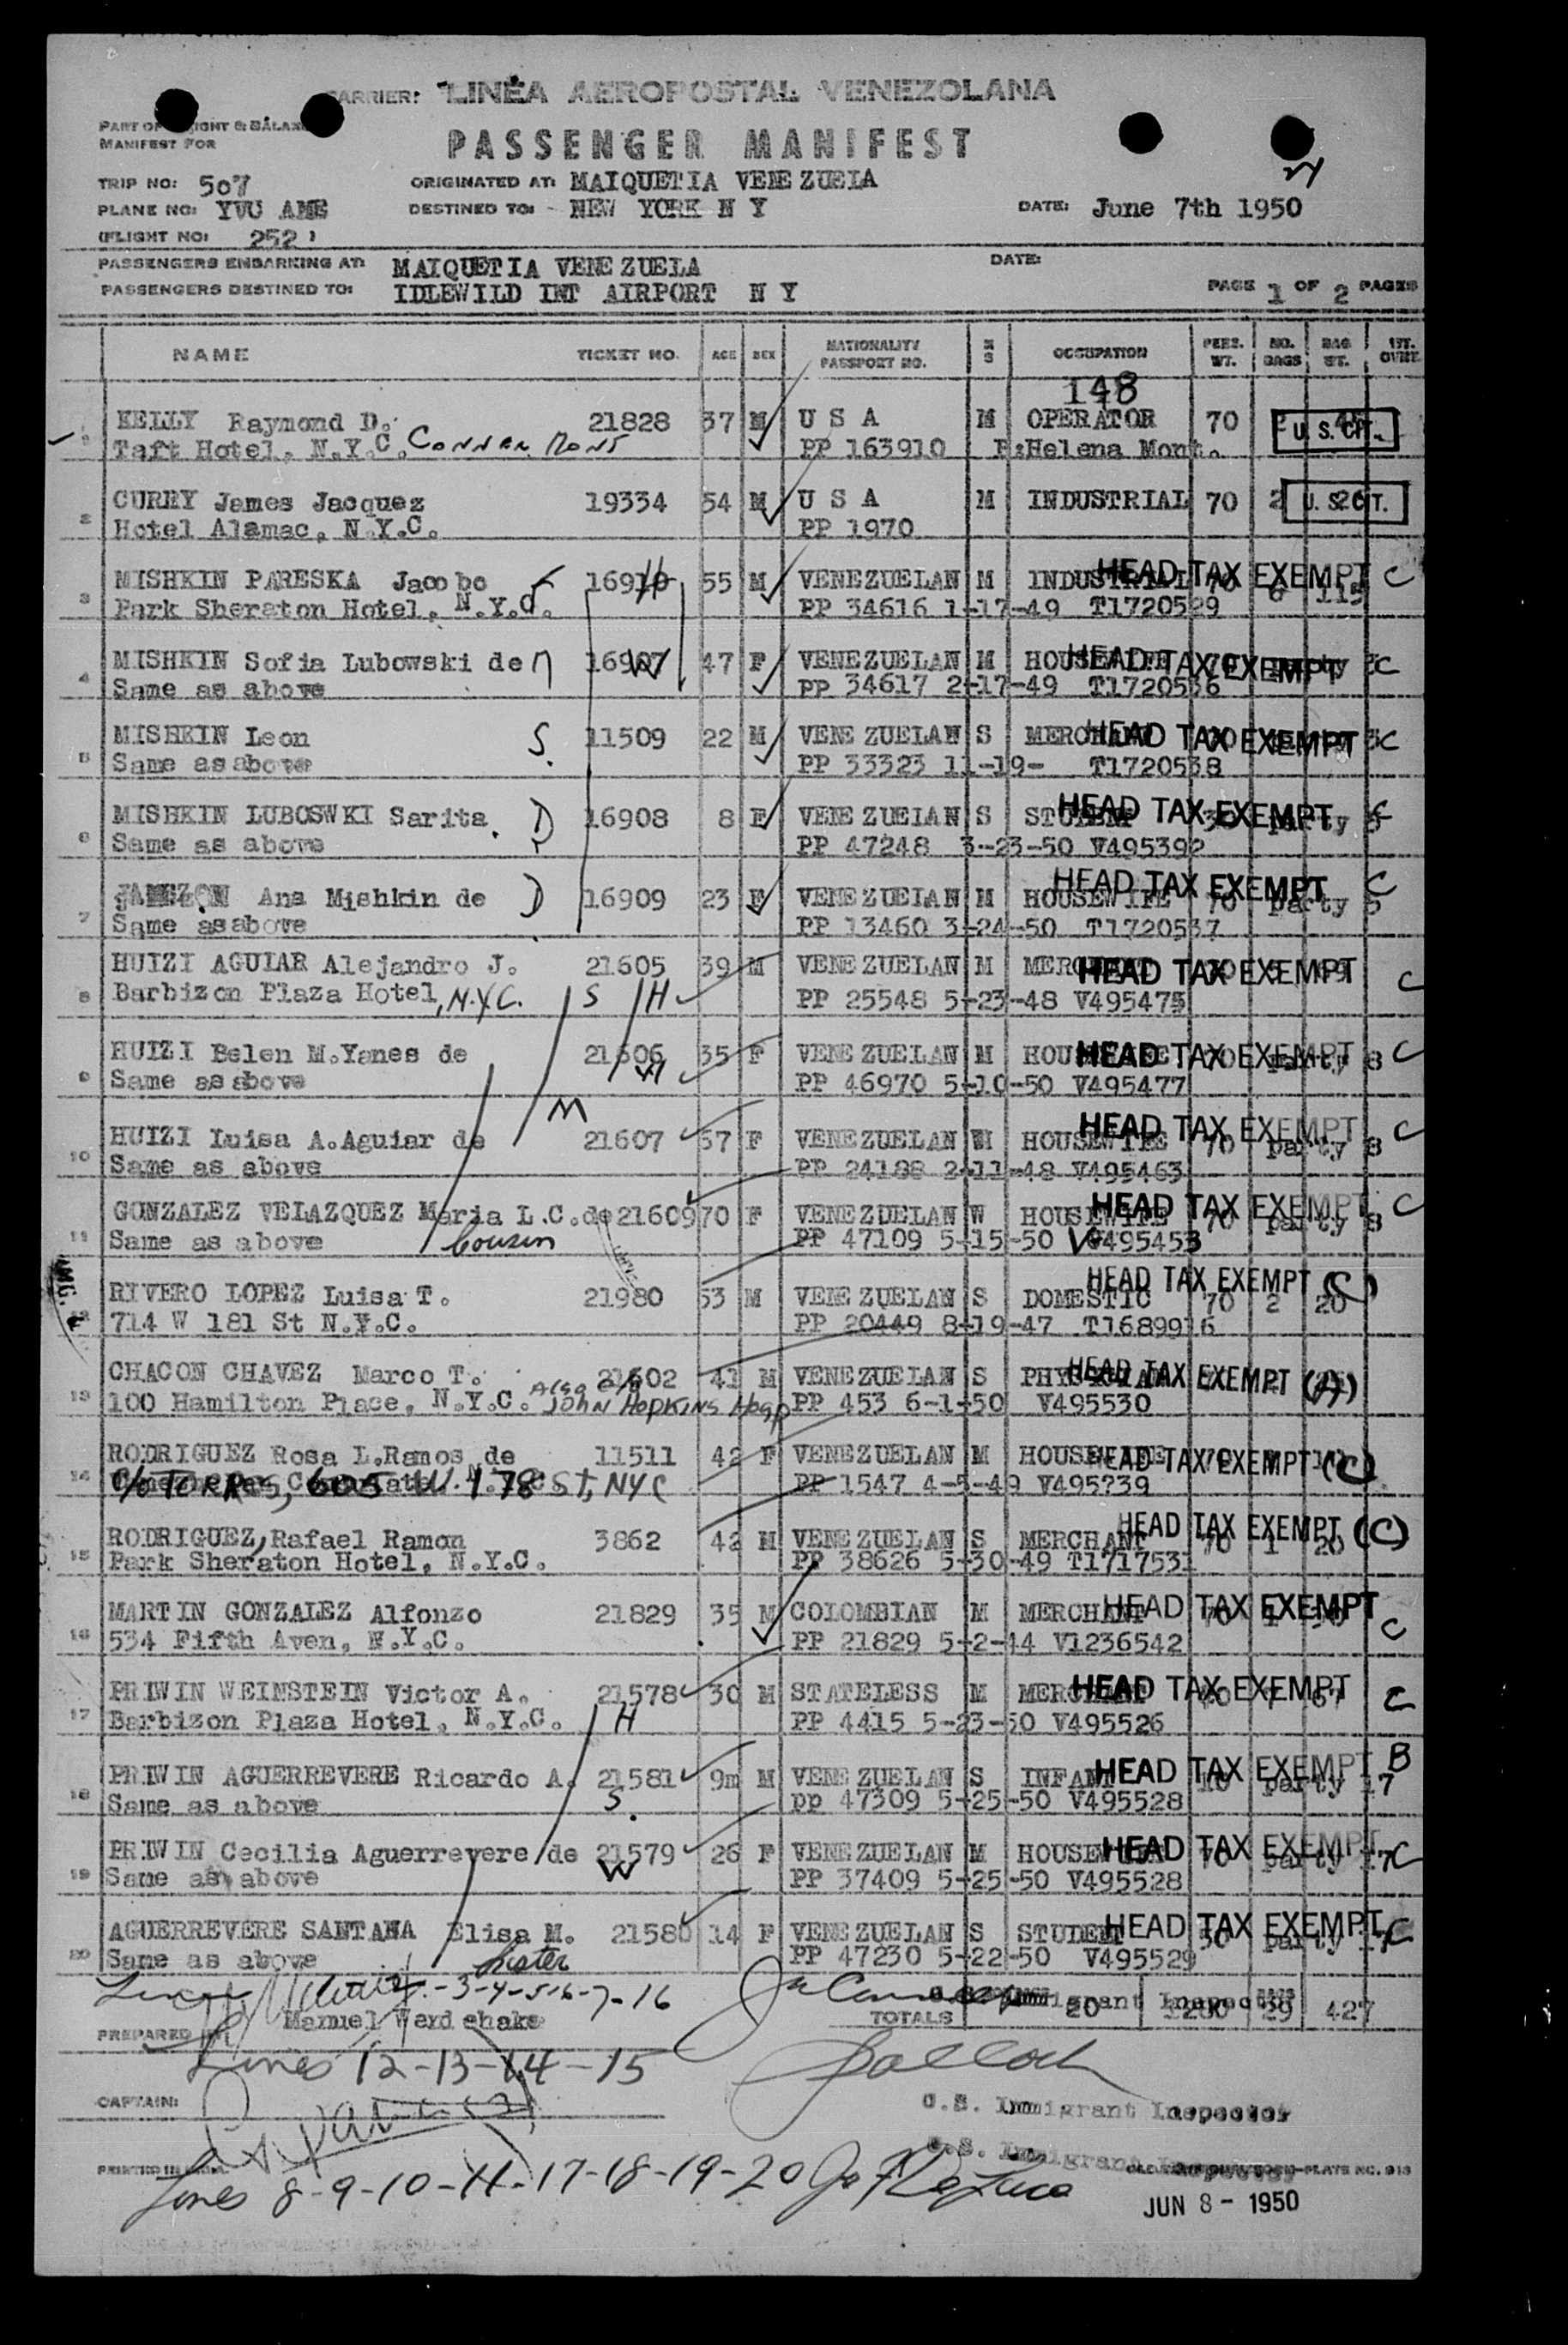 CARRIER: LINEA AEROPOSTAL VENEZOLANA
PART OF WEIGHT & BALANCE
MANIFEST FOR
PASSENGER MANIFEST
TRIP NO: 507
ORIGINATED AT: MAIQUETIA VENEZUELA
PLANE NO: YVU AME
DESTINED TO: NEW YORK N Y
DATE: June 7th 1950
(FLIGHT NO: 252)
PASSENGERS EMBARKING AT: MAIQUETIA VENEZUELA DATE:
PASSENGERS DESTINED TO: IDLEWILD INT AIRPORT N Y PAGE 1 OF 2 PAGES
NAME TICKET NO. AGE SEX NATIONALITY PASSPORT NO. M S OCCUPATION PERS. WT. NO. BAGS BAG WT.
148
1 KELLY Raymond D. 21828 37 M U S A M OPERATOR 70 U. S. CIT.
Taft Hotel, N.Y.C. PP 163910 B:Helena Mont.
2 CURRY James Jacquez 19334 54 M U S A M INDUSTRIAL 70 2 U. S. CIT.
Hotel Alamac, N.Y.C. PP 1970
3 MISHKIN PARESKA Jacobo 16910 H 55 M VENEZUELAN M INDUSTRIAL HEAD TAX EXEMPT C
Park Sheraton Hotel, N.Y.C. PP 34616 1-17-49 T1720529 6 115
4 MISHKIN Sofia Lubowski de M 16907 W 47 F VENEZUELAN M HOUSEWIFE HEAD TAX EXEMPT C
Same as above PP 34617 2-17-49 T1720536
5 MISHKIN Leon S. 11509 22 M VENEZUELAN S MERCHANT HEAD TAX EXEMPT C
Same as above PP 33323 11-19- T1720538
6 MISHKIN LUBOSWKI Sarita. D 16908 8 F VENEZUELAN S STUDENT HEAD TAX EXEMPT party C
Same as above PP 47248 3-23-50 V495392
7 Ana Mishkin de D 16909 23 F VENEZUELAN M HOUSEWIFE 70 HEAD TAX EXEMPT party C
Same as above PP 13460 3-24-50 T1720537
8 HUIZI AGUIAR Alejandro J. 21605 39 M VENEZUELAN M MERCHANT HEAD TAX EXEMPT C
Barbizon Plaza Hotel, N.Y.C. S H PP 25548 5-23-48 V495475
9 HUIZI Belen M.Yanes de 21606 W 35 F VENEZUELAN M HOUSEWIFE HEAD TAX EXEMPT party 8 C
Same as above PP 46970 5-10-50 V495477
M
10 HUIZI Luisa A.Aguiar de 21607 57 F VENEZUELAN W HOUSEWIFE 70 HEAD TAX EXEMPT party 8 C
Same as above PP 24188 2-11-48 V495463
11 GONZALEZ VELAZQUEZ Maria L.C.de 21609 70 F VENEZUELAN W HOUSEWIFE 70 HEAD TAX EXEMPT party 8 C
Same as above Cousin PP 47109 5-15-50 V495453
12 RIVERO LOPEZ Luisa T. 21980 53 M VENEZUELAN S DOMESTIC 70 2 20 HEAD TAX EXEMPT (C)
714 W 181 St N.Y.C. PP 20449 8-19-47 T1689916
13 CHACON CHAVEZ Marco T. 21602 41 M VENEZUELAN S PHYSICIAN HEAD TAX EXEMPT (A)
100 Hamilton Place, N.Y.C. Also c/o JOHN HOPKINS Hosp PP 453 6-1-50 V495530
14 RODRIGUEZ Rosa L.Ramos de 11511 42 F VENEZUELAN M HOUSEWIFE HEAD TAX EXEMPT (C)
c/o TORRES, 605 W. 178 ST, NYC PP 1547 4-5-49 V495739
15 RODRIGUEZ, Rafael Ramon 3862 42 M VENEZUELAN S MERCHANT 70 1 20 HEAD TAX EXEMPT (C)
Park Sheraton Hotel, N.Y.C. PP 38626 5-30-49 T1717531
16 MARTIN GONZALEZ Alfonzo 21829 35 M COLOMBIAN M MERCHANT HEAD TAX EXEMPT C
534 Fifth Aven, N.Y.C. PP 21829 5-2-44 V1236542
17 PRIWIN WEINSTEIN Victor A. 21578 30 M STATELESS M MERCHANT HEAD TAX EXEMPT C
Barbizon Plaza Hotel, N.Y.C. H PP 4415 5-23-50 V495526
18 PRIWIN AGUERREVERE Ricardo A. 21581 9m M VENEZUELAN S INFANT 10 HEAD TAX EXEMPT party 17 B
Same as above S. pp 47309 5-25-50 V495528
19 PRIWIN Cecilia Aguerrevere de 21579 26 F VENEZUELAN M HOUSEWIFE 70 HEAD TAX EXEMPT party 17 C
Same as above W PP 37409 5-25-50 V495528
20 AGUERREVERE SANTANA Elisa M. 21580 14 F VENEZUELAN S STUDENT HEAD TAX EXEMPT party C
Same as above Sister PP 47230 5-22-50 V495529
-3-4-5-6-7-16
Immigrant Inspector
PREPARED BY: Manuel Werdehake TOTALS 20 29 427
Lines 12-13-14-15
CAPTAIN:
U.S. Immigrant Inspector
U.S. Immigrant
Lines 8-9-10-11-17-18-19-20
JUN 8 - 1950